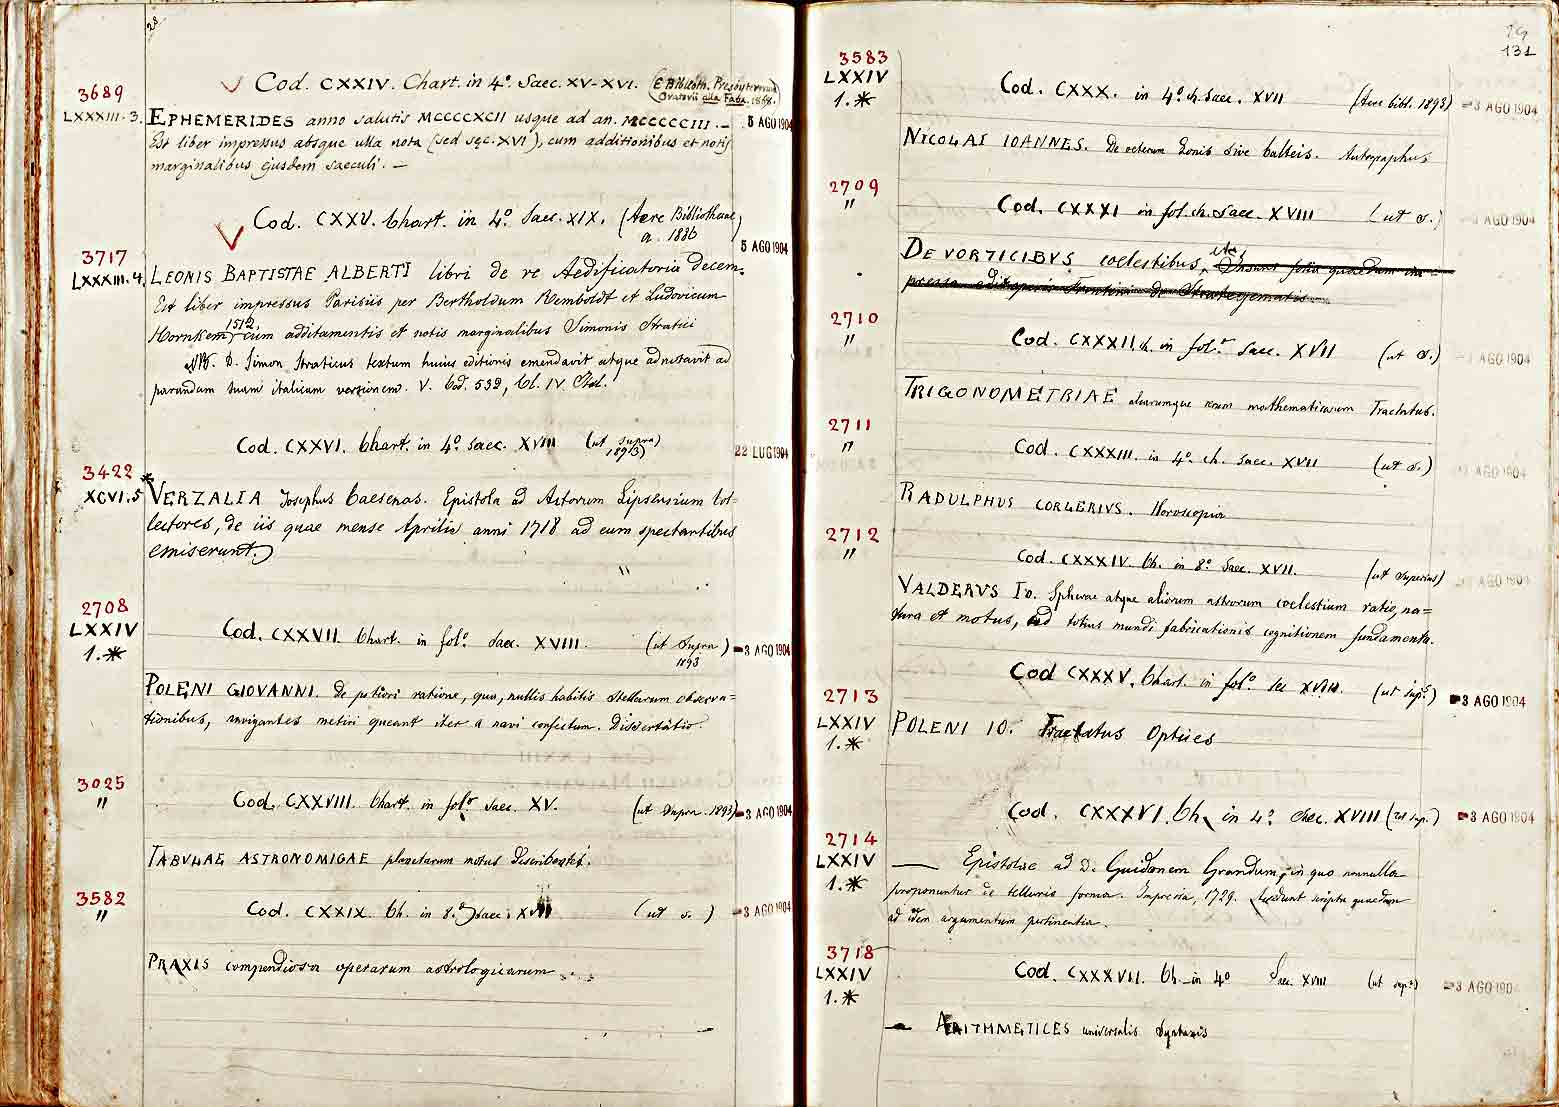 28
Cod. CXXIV. Chart. in 4º Saec. XV-XVI. (E Biblioth. Presbyterorum
Oratorii alla Fava. 1868.)
3689
LXXXIII. 3. EPHEMERIDES anno salutis MCCCCXCII usque ad an. MCCCCCIII. — 5 AGO 1904
Est liber impressus absque ulla nota (sed sec. XVI), cum additionibus et notis
marginalibus ejusdem saeculi. —
Cod. CXXV. Chart. in 4º Saec. XIX. (Aere Bibliothecae
a. 1886)
5 AGO 1904
3717
LXXXIII. 4. LEONIS BAPTISTAE ALBERTI libri de re Aedificatoria decem.
Est liber impressus Parisiis per Bertholdum Remboldt et Ludovicum
Hornken, 1512, cum additamentis et notis marginalibus Simonis Stratici
NB. D. Simon Straticus textum huius editionis emendavit atque adnotavit ad
parandam suam italicam versionem. V. Cod. 532, Cl. IV Ital.
Cod. CXXVI. Chart. in 4º Saec. XVIII (ut supra)
1893)
22 LUG 1904
3422 *
XCVI. 5 VERZALIA Josephus Caesenas. Epistola ad Actorum Lipsensium Col=
lectores, de iis quae mense Aprilis anni 1718 ad eum spectantibus
emiserunt.
"
2708
LXXIV
1.*
Cod. CXXVII. Chart. in folº. saec. XVIII. (ut supra)
1893
3 AGO 1904
POLENI GIOVANNI. De potiori ratione, qua, nullis habitis stellarum observa=
tionibus, navigantes metiri queant iter a navi confectum. Dissertatio.
3025
"
Cod. CXXVIII. Chart. in folº saec. XV. (ut supra. 1893) 3 AGO 1904
TABULAE ASTRONOMICAE planetarum motus describentes.
3582
"
Cod. CXXIX. Ch. in 8.º Saec. XVII (ut s.) 3 AGO 1904
PRAXIS compendiosa operarum astrologicarum
131
3583
LXXIV
1.*
Cod. CXXX. in 4º ch. saec. XVII (Aere bibl. 1893) 3 AGO 1904
NICOLAI IOANNES. De veterum Zonis sive balteis. Autographus
2709
"
Cod. CXXXI in fol. ch. saec. XVIII (ut s.) 3 AGO 1904
DE VORTICIBVS coelestibus, etc. Insunt folia quaedam im=
pressa editi operis Frontini de Strategematis
2710
"
Cod. CXXXII. ch. in folº. saec. XVII (ut s.) 3 AGO 1904
TRIGONOMETRIAE aliarumque rerum mathematicarum Tractatus.
2711
"
Cod. CXXXIII. in 4º. ch. saec. XVII (ut s.) 3 AGO 1904
RADULPHUS CORLERIVS. Horoscopia
2712
"
Cod. CXXXIV. Ch. in 8º. Saec. XVII. (ut superius) 3 AGO 1904
VALDERVS Io. Spherae atque aliorum astrorum coelestium ratio, na=
tura et motus, ad totius mundi fabricationis cognitionem fundamenta.
Cod CXXXV. Chart. in folº. sec XVIII. (ut sup.) 3 AGO 1904
2713
LXXIV
1.*
POLENI IO. Tractatus Optices
Cod. CXXXVI. Ch. in 4º. saec. XVIII (ut sup.) 3 AGO 1904
2714
LXXIV
1.*
— Epistolae ad D. Guidonem Grandum, in quo nonnulla
proponuntur de telluris forma. Impressa, 1729. Accedunt scripta quaedam
ad idem argumentum pertinentia.
3718
LXXIV
1.*
Cod. CXXXVII. Ch. in 4º Saec. XVIII (ut supª) 3 AGO 190
— ARITHMETICES universalis Syntaxis